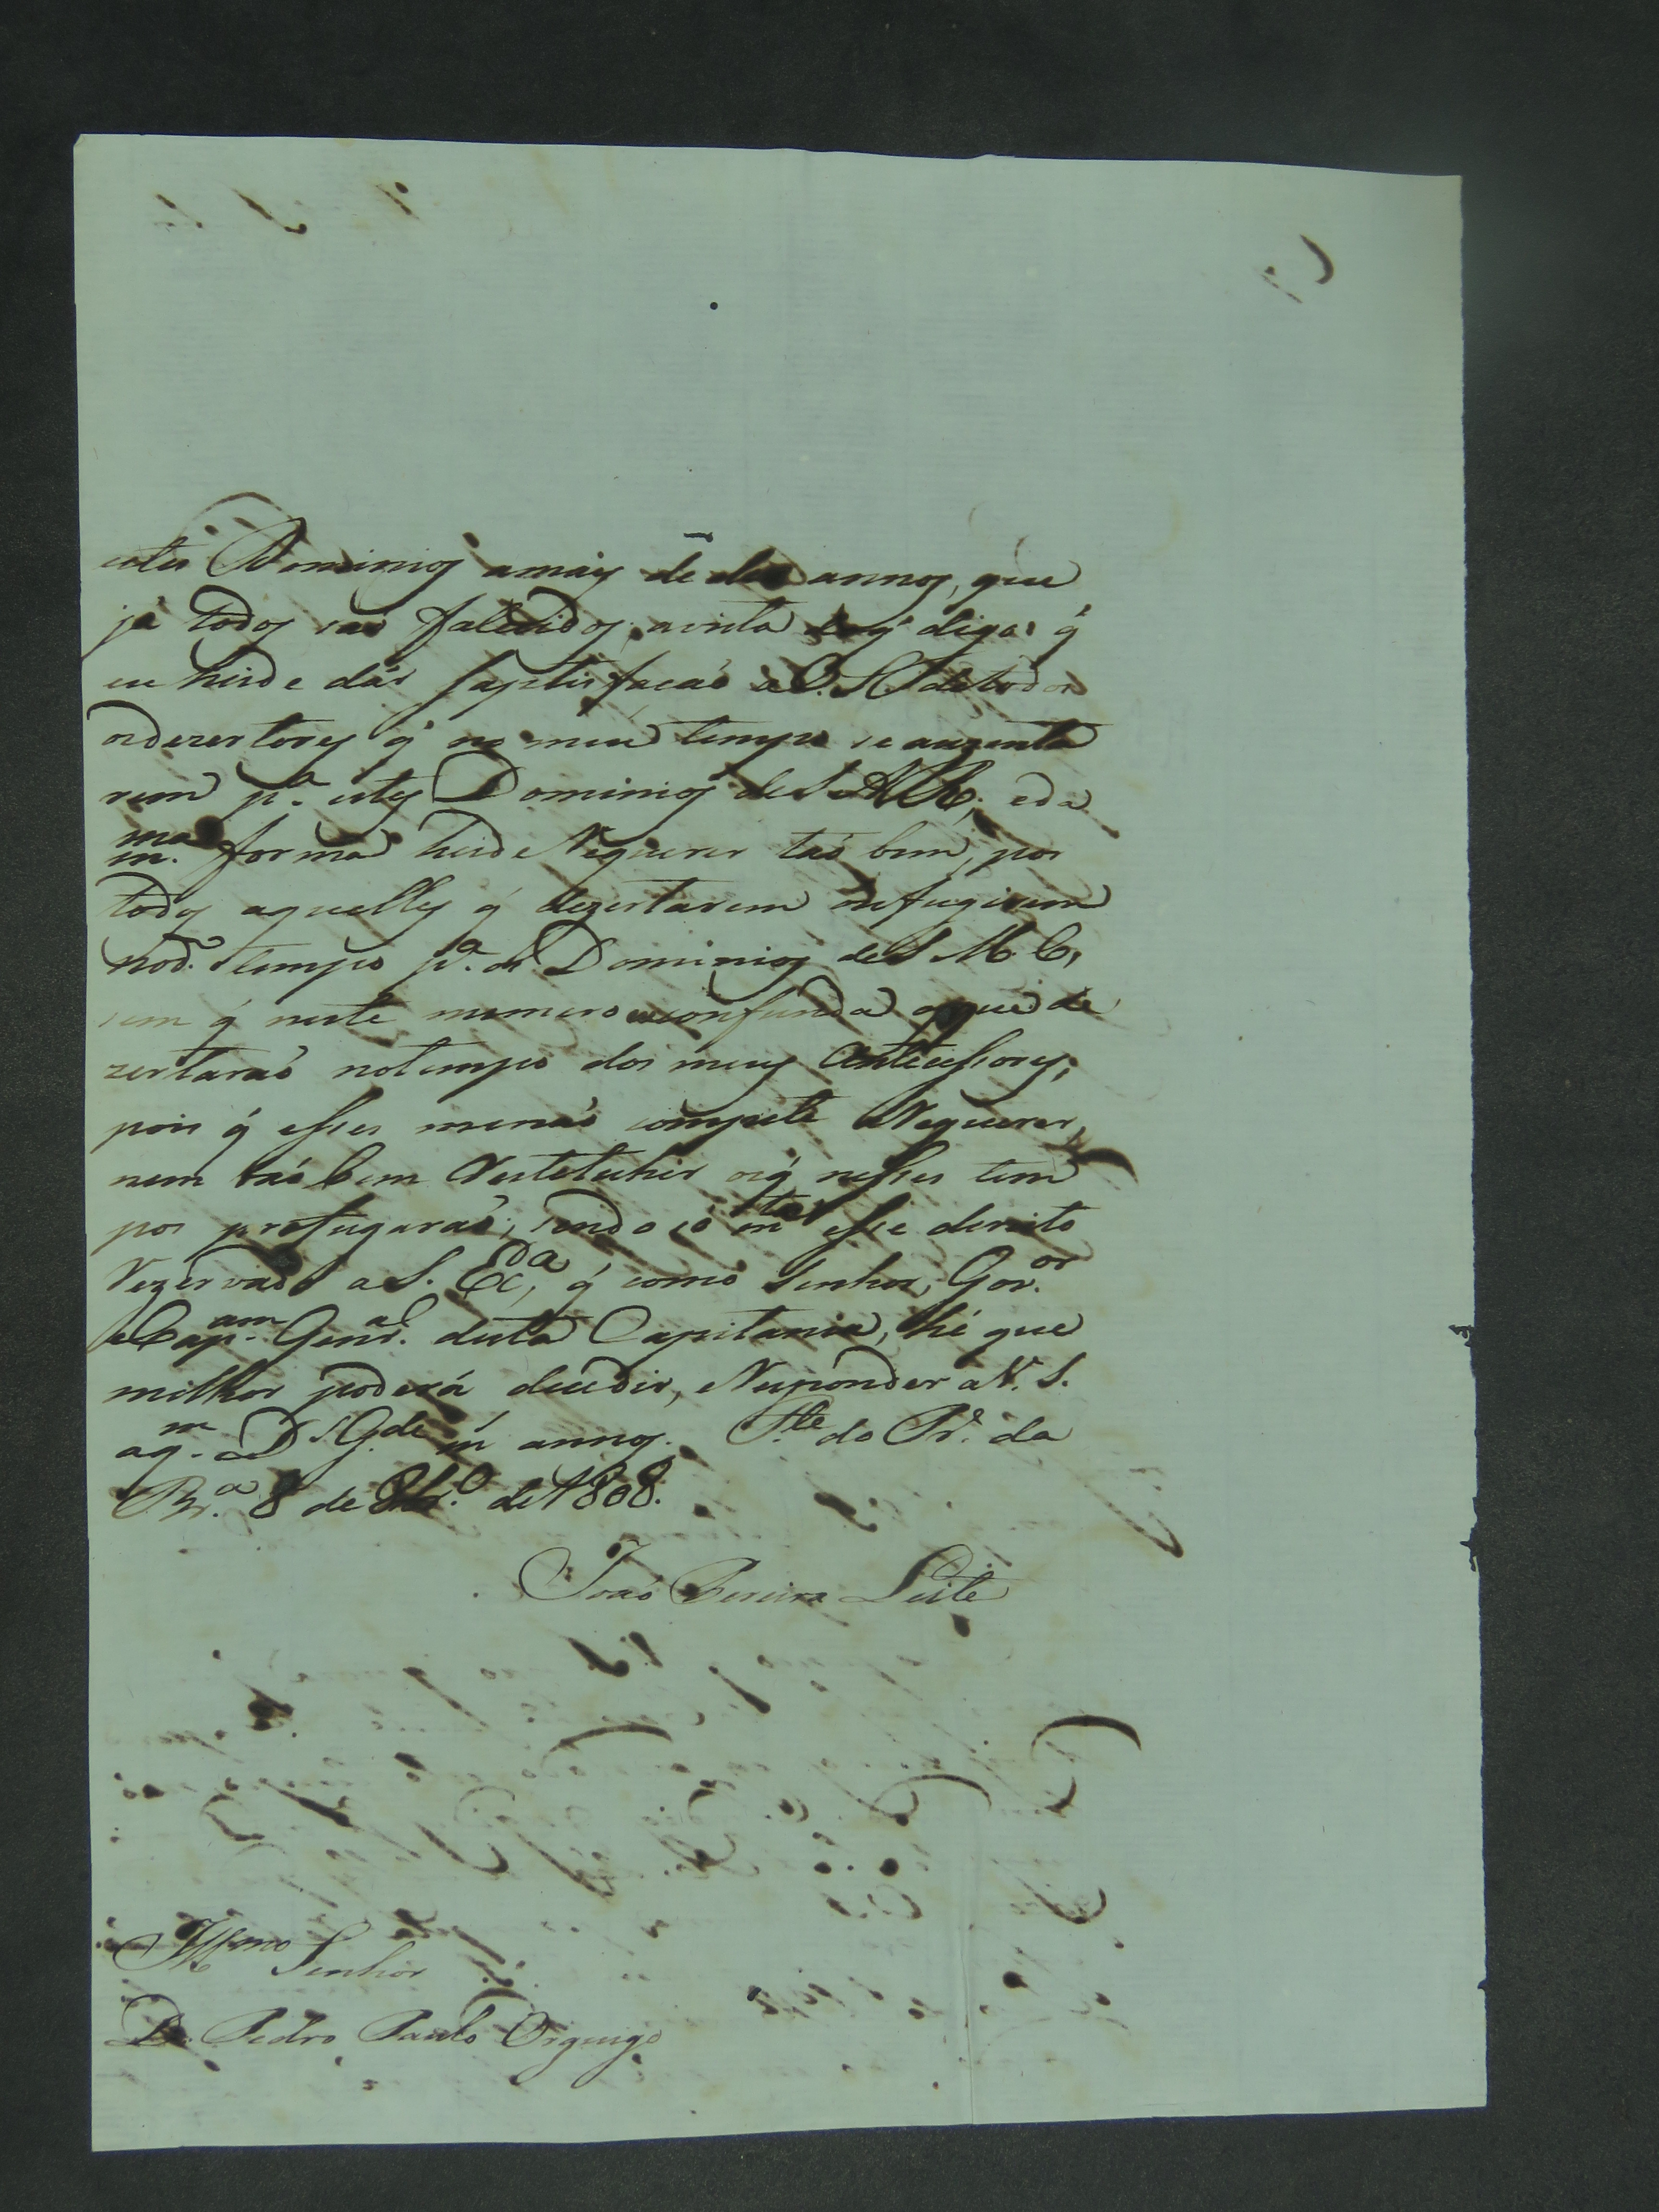 estes Dominios amais de dez annos, que
já todos são falecidos, avista do q̃ digo q̃
eu heide dár saptisfacaõ a V. S. de todos
os dezertores q̃ no meu tempo se auzenta
rem p.ª estes Dominios de S A R; e da
m.ma forma heide Requerer taõ bem, por
todos aquelles q̃ dezertarem ou fugirem
no d.º tempo p.ª os Dominios de S M C,
sem q̃ neste numero se confunda os que de
zertaraõ no tempo dos meus Antecessores;
pois q̃ esses me naõ compete Requerer,
nem taõ bem Restetuhir os q̃ nesses tem
pos profugaraõ, sendo só m.te esse dereito
Rezervado a S. Ex.cia, q̃ como Senhor, Gov.or
e Cap.am Gen.al desta Capitania, hé que
milhor poderá decedir, e Responder a V. S.
a q.m D.s G.de m.s annos. F.te do Pr.e da
Br.ª 8 de 8br.º de 1808.
João Pereira Leite
Ill.mo Senhor
D. Pedro Paulo